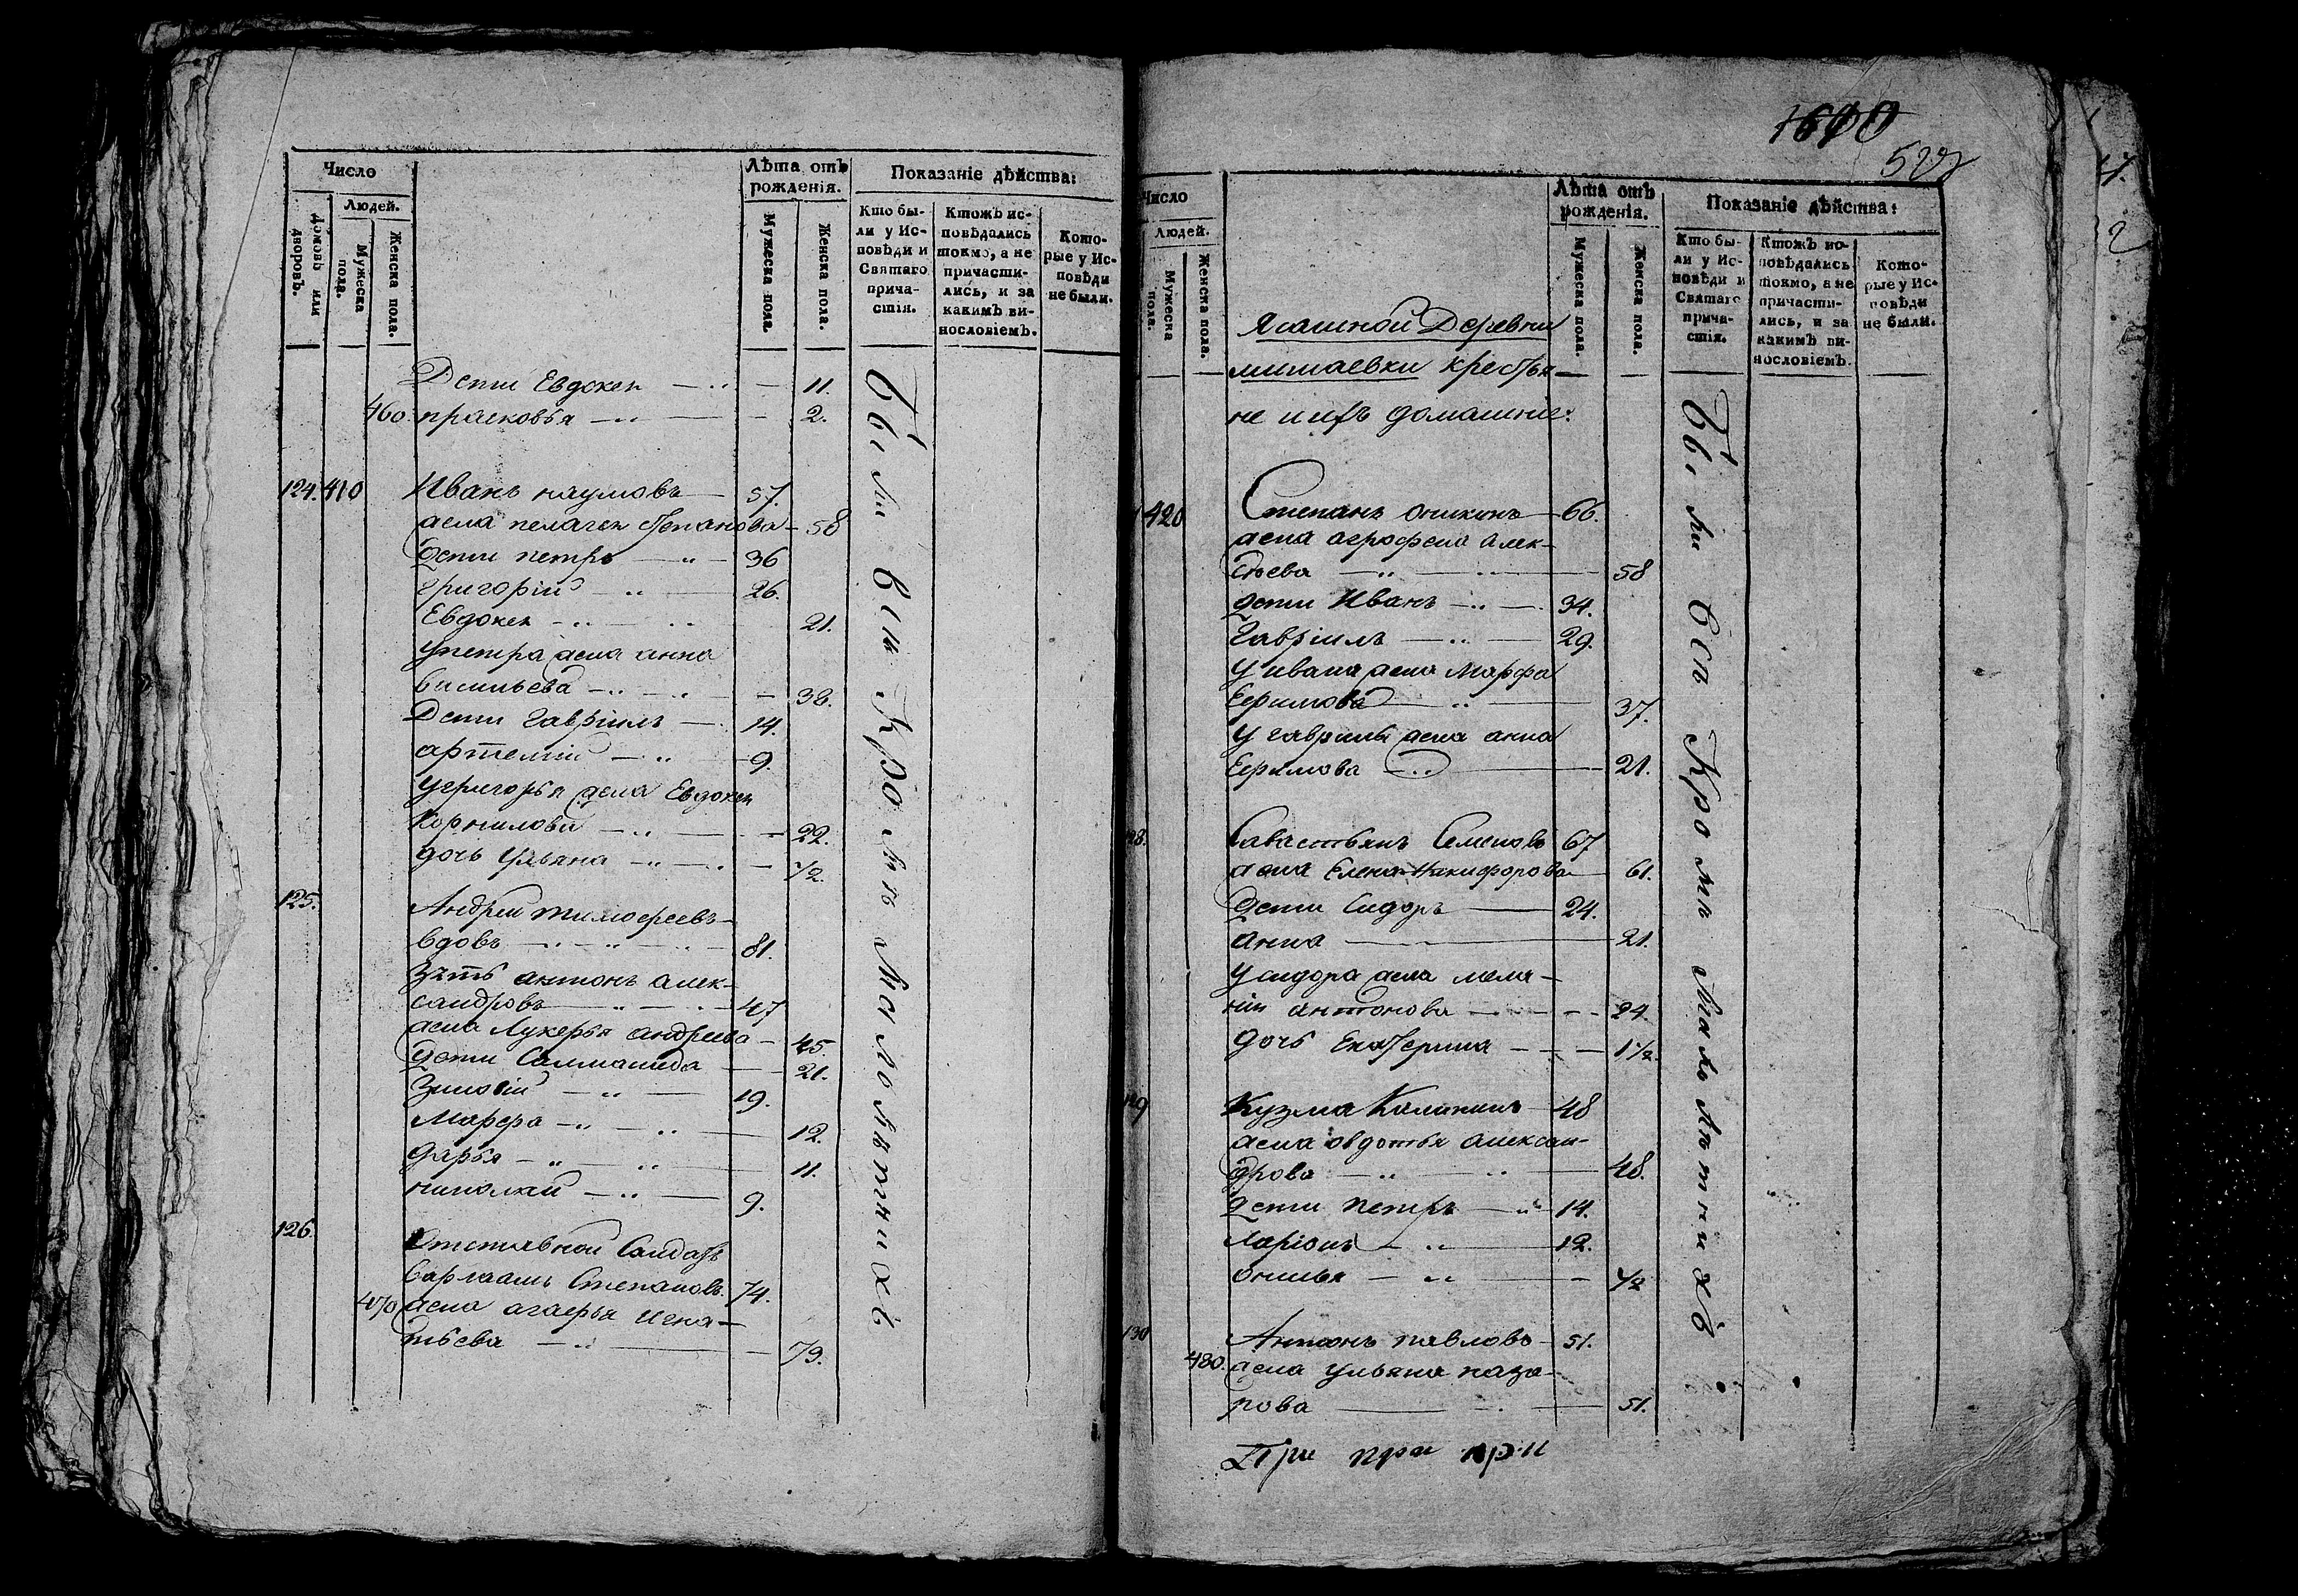 Число
Людей.
Домовъ или дворовъ.
Мужеска пола.
Женска пола.
Лѣта отъ рожденія.
Мужеска пола.
Женска пола.
Показаніе дѣйства:
Кто бы-
ли у Ис-
повѣди и
Святаго
прича-
стія.
Ктожъ ис-
повѣдались
токмо, а не
причасти-
лись, и за
какимъ ви-
нословіемъ.
Кото-
рые у Ис-
повѣди
не были.
Дети Евдокея — 11.
460. прасковья — 2.
124. 410 Иванъ наумовъ — 57.
жена пелагея степанова — 58
Дети петръ — 36
григорій — 26.
Евдокея — 21.
у петра жена анна
васильева — 38.
Дети гавріилъ — 14.
артемій — 9.
у григорья жена Евдокея
корнилова — 22.
дочь ульяна — 1/2.
125. Андрей тимофеевъ —
вдовъ — 81.
зять антонъ алек-
сандровъ — 47
жена Лукерья андреева — 45.
Дети — 21.
Зиновій — 19.
Марфа — 12.
дарья — 11.
николай — 9.
126. Отставной Салдатъ
варлаамъ Степановъ 74.
470 жена агафья игна-
тьева — 73.
Были вси Кроме Малолетнихъ
1610
522
Число
Людей.
Мужеска пола.
Женска пола.
Лѣта отъ рожденія.
Мужеска пола.
Женска пола.
Показаніе дѣйства:
Кто бы-
ли у Ис-
повѣди и
Святаго
прича-
стія.
Ктожъ ис-
повѣдались
токмо, а не
причасти-
лись, и за
какимъ ви-
нословіемъ.
Кото-
рые у Ис-
повѣди
не были.
Ясашной Деревни
мишаевки крестья-
не и ихъ домашние:
420 Степанъ — 66.
жена агрофена алек-
сѣева — 58
дети Иванъ — 34.
Гавріилъ — 29.
у ивана жена Марфа
Ефимова — 37.
у гаврилы жена анна
Ефимова — 21.
128. Савастьянъ Семеновъ 67
жена Елена Никифорова — 61.
Дети Сидоръ — 24.
анна — 21.
у сидора жена мела-
нія антонова — 24.
дочь Екатерина — 1 1/2.
129 Кузма Калининъ — 48
жена овдотья алексан-
дрова — 48.
дети петръ — 14.
Ларіонъ — 12.
— 1/2
130 Антонъ павловъ — 51.
480. жена ульяна наза-
рова — 51.
Были вси Кроме Малолетнихъ
При при при